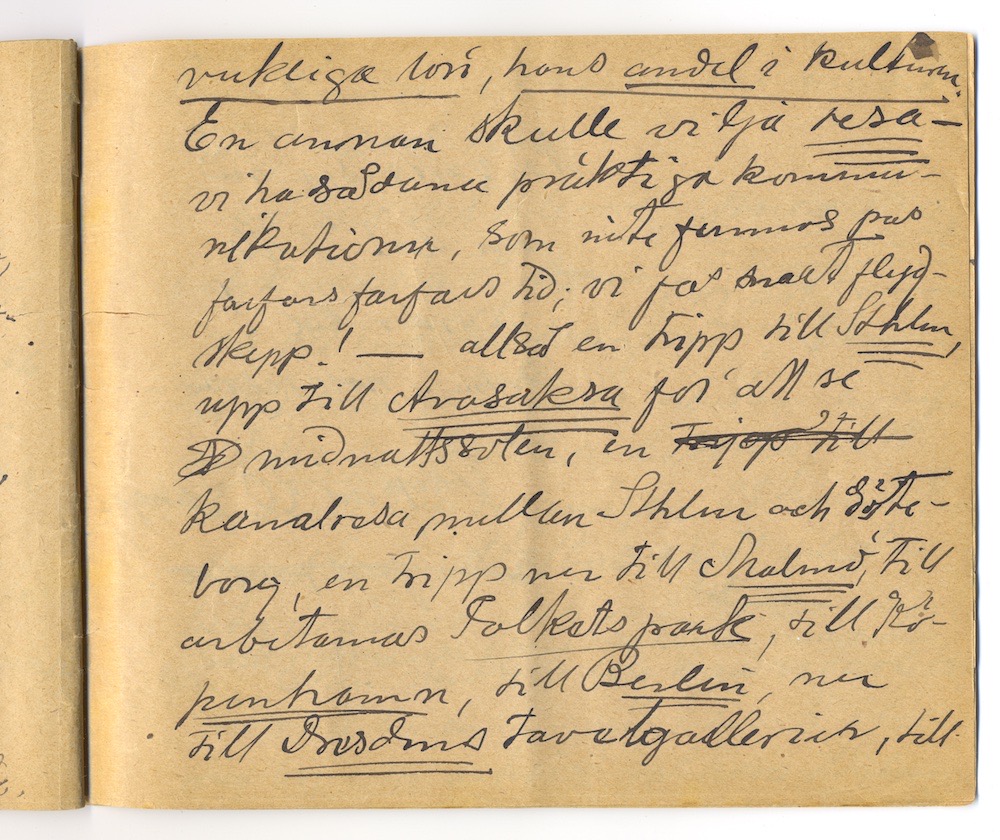 verkliga lön, hans andel i kulturen.
En annan skulle vilja resa –
vi ha sådana präktiga kommu-
nikationer, som inte funnos på
farfars farfars tid; vi få snart flyg-
skepp! — alltså en tripp till Sthlm,
upp till Avasaksa för att se
midnattssolen, en tripp till
kanalresa mellan Sthlm och Göte-
borg, en tripp ner till Malmö, till
arbetarnas Folkets park, till Kö-
penhamn, till Berlin, ner
till Dresdens tavelgallerier, till